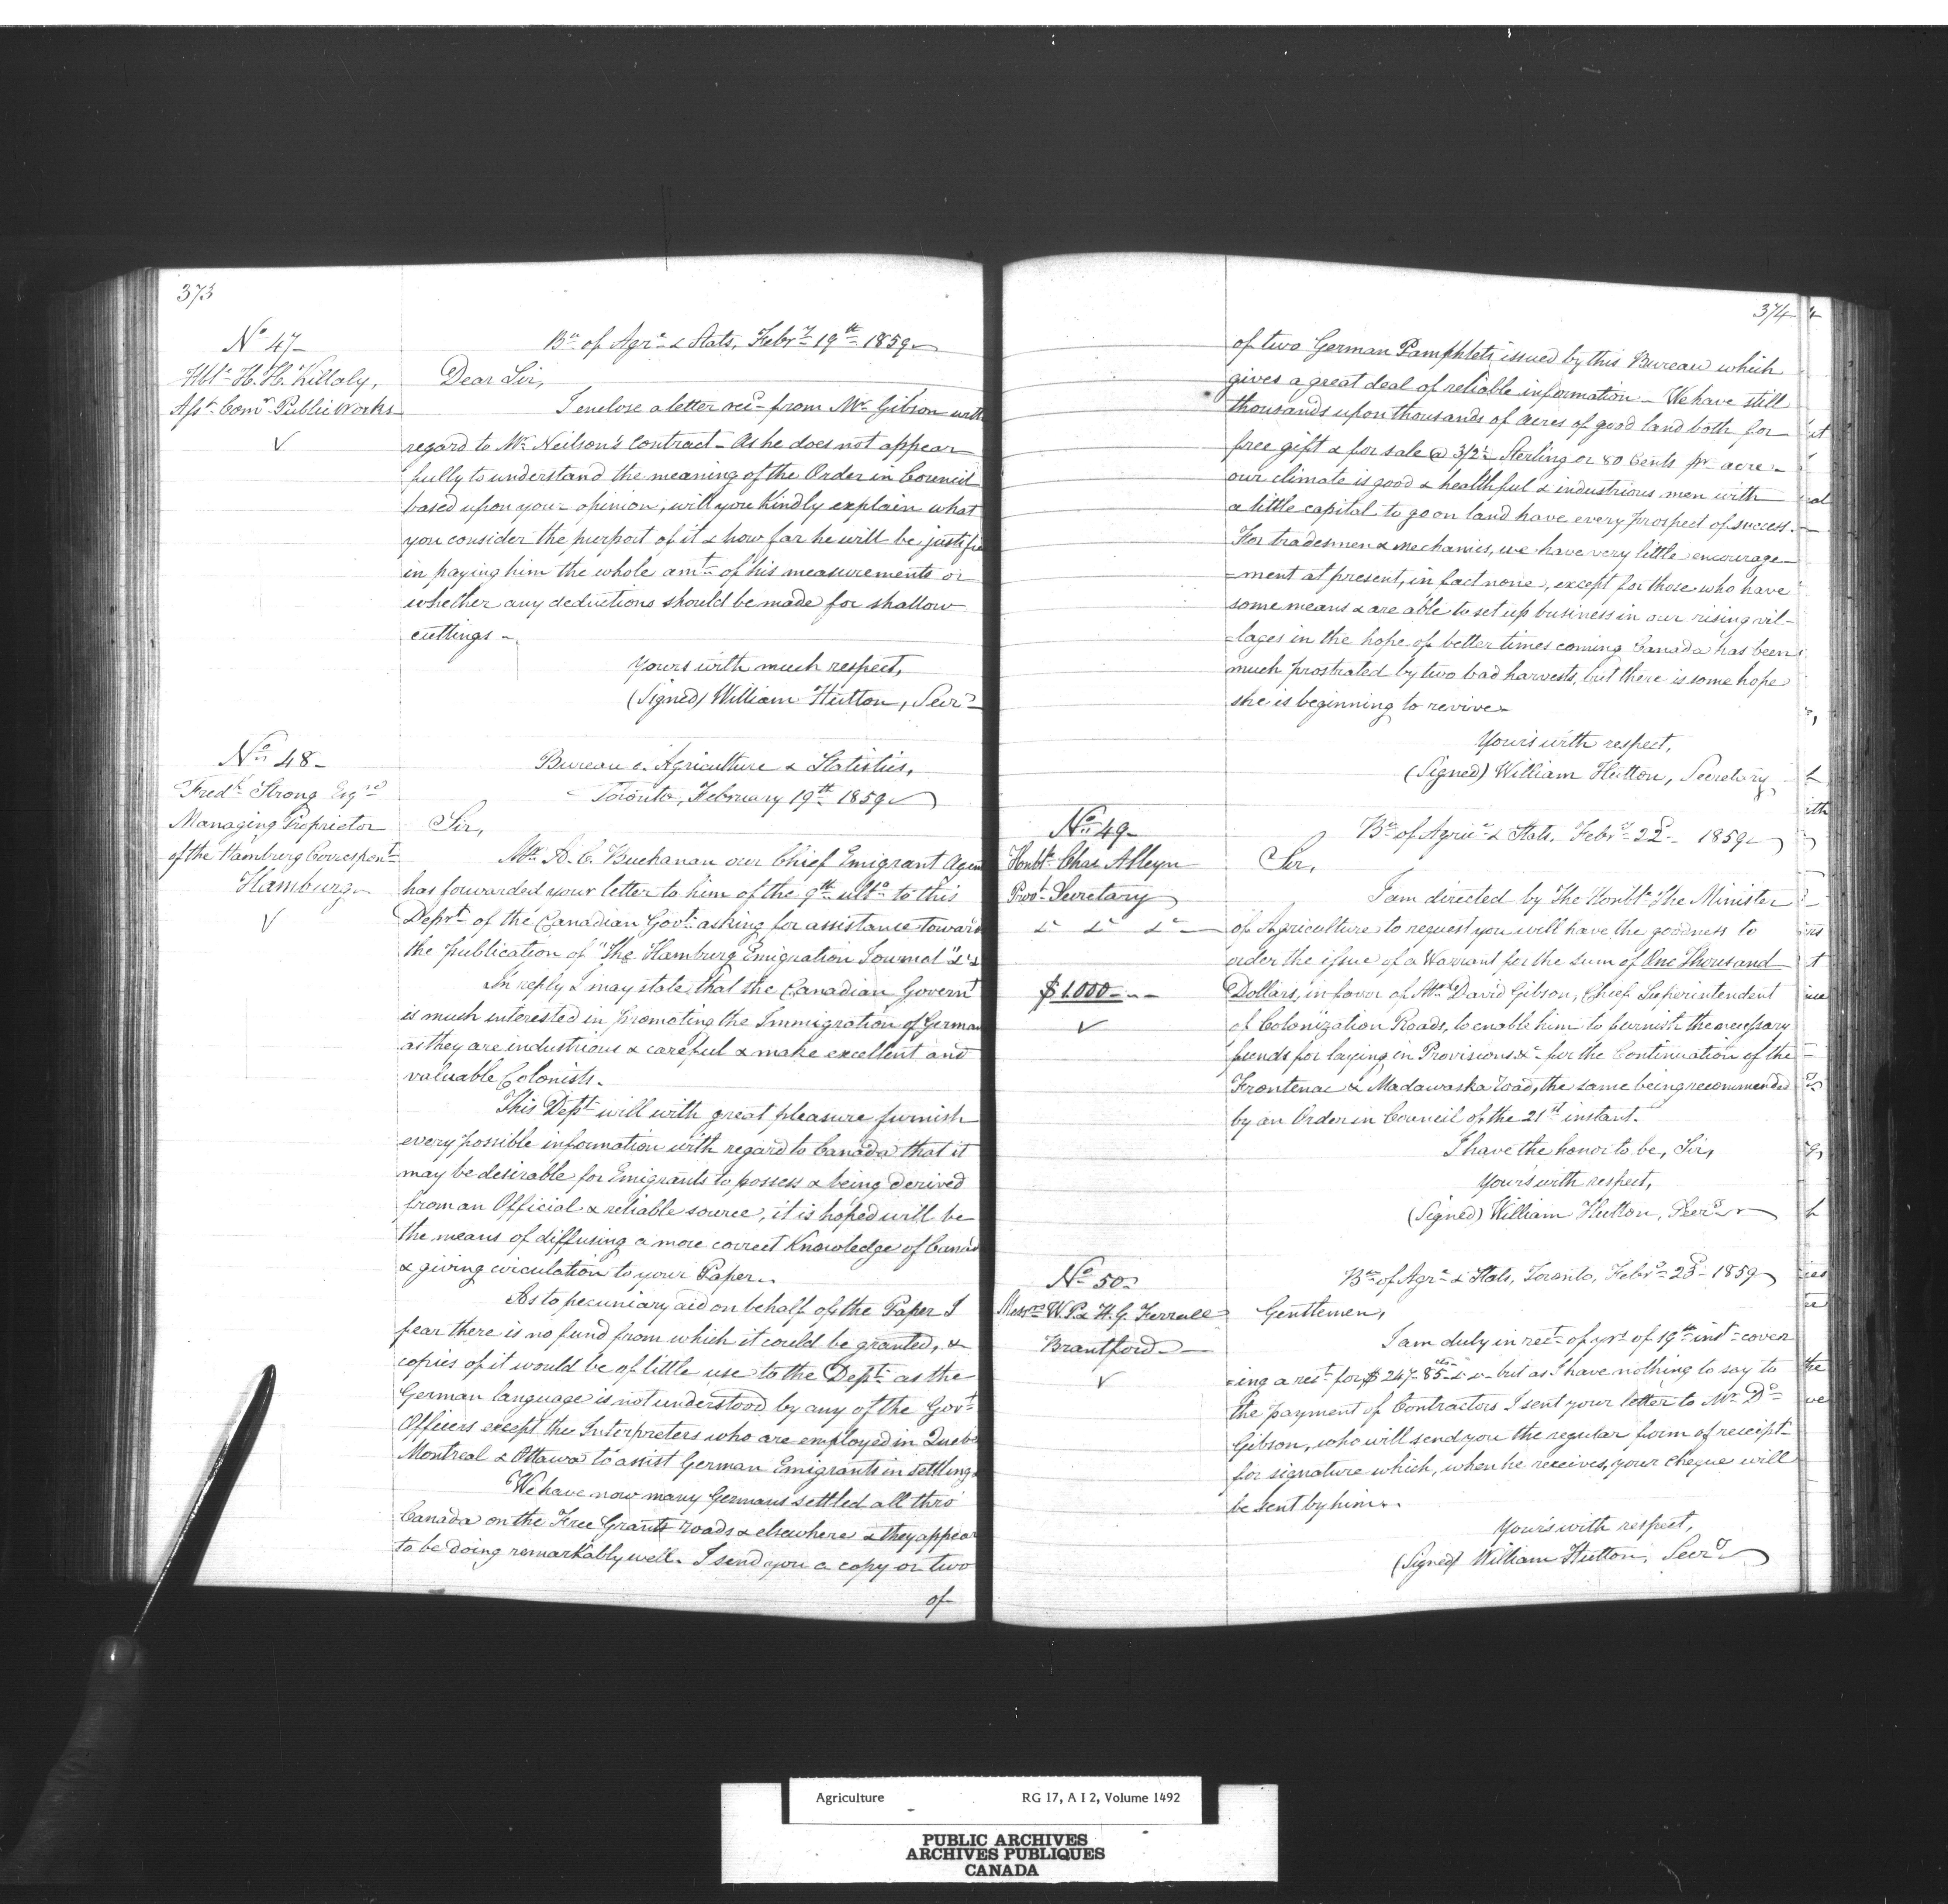 373
No 47
Hble H. H. Killaly,
Asst Comr Public Works
Bu of Agre & Stats, Febry 19th 1859
Dear Sir,
I enclose a letter recd from Mr Gibson with
regard to Mr Neilson's contract - As he does not appear
fully to understand the meaning of the Order in Council
based upon your opinion, will you kindly explain what
you consider the purport of it & how far he will be justifie
in paying him the whole amt of his measurements or
whether any deductions should be made for shallow
cuttings -
Yours with much respect,
(Signed) William Hutton, Secry
No 48
Fredk Strong Esqre
Managing Proprietor
of the Hamburg Correspont
Hamburg
Bureau of Agriculture & Statistics,
Toronto, February 19th 1859
Sir,
Mr A. C. Buchanan our Chief Emigrant Agen
has forwarded your letter to him of the 9th ulto to this
Deprt of the Canadian Govt asking for assistance toward
the publication of "The Hamburg Emigration Journal" &c &
In reply I may state that the Canadian Governt
is much interested in promoting the Immigration of German
as they are industrious & careful & make excellent and
valuable Colonists.
This Dept will with great pleasure furnish
every possible information with regard to Canada that it
may be desirable for Emigrants to possess & being derived
from an Official & reliable source, it is hoped will be
the means of diffusing a more correct Knowledge of Canad
& giving circulation to your Paper.
As to pecuniary aid on behalf of the Paper I
fear there is no fund from which it could be granted, &
copies of it would be of little use to the Dept as the
German language is not understood by any of the Govt
Officers except the Interpreters who are employed in Quebe
Montreal & Ottawa to assist German Emigrants in settling
We have now many Germans settled all thro'
Canada on the Free Grants roads & elsewhere & they appear
to be doing remarkably well. I send you a copy or two
of
374
of two German Pamphlets issued by this Bureau which
gives a great deal of reliable information - We have still
thousands upon thousands of acres of good land both for
free gift & for sale @ 3/2½ Sterling or 80 Cents pr acre -
our climate is good & healthful & industrious men with
a little capital to go on land have every prospect of success.
For tradesmen & mechanics, we have very little encourage-
=ment at present, in fact none, except for those who have
some means & are able to set up business in our rising vil-
=lages in the hope of better times coming Canada has been
much prostrated by two bad harvests, but there is some hope
she is beginning to revive
Yours with respect,
(Signed) William Hutton, Secretary
No 49
Honble Chas Alleyn
Provl Secretary
&c &c &c
$1.000
Bu of Agrice & Stats, Febry 22d 1859
Sir,
I am directed by The Honble The Minister
of Agriculture to request you will have the goodness to
order the issue of a Warrant for the sum of One Thousand
Dollars, in favor of David Gibson, Chief Superintendent
of Colonization Roads, to enable him to furnish the necessary
funds for laying in Provisions &c for the Continuation of the
Frontenac & Madawaska road, the same being recommended
by an Order in Council of the 21st instant.
I have the honor to be, Sir,
Yours with respect,
(Signed) William Hutton, Secry
No 50
Messrs W. P. & H. G.
Brantford
Bu of Agre & Stats, Toronto, Febry 23d 1859
Gentlemen,
I am duly in rect of yrs of 19th inst cover
=ing a rest for $247.85cts &c but as I have nothing to say to
the payment of Contractors I sent your letter to Mr Dd
Gibson, who will send you the regular form of receipt
for signature which, when he receives, your cheque will
be sent by him.
Yours with respect,
(Signed) William Hutton, Secry
Agriculture RG 17, A I 2, Volume 1492
PUBLIC ARCHIVES
ARCHIVES PUBLIQUES
CANADA